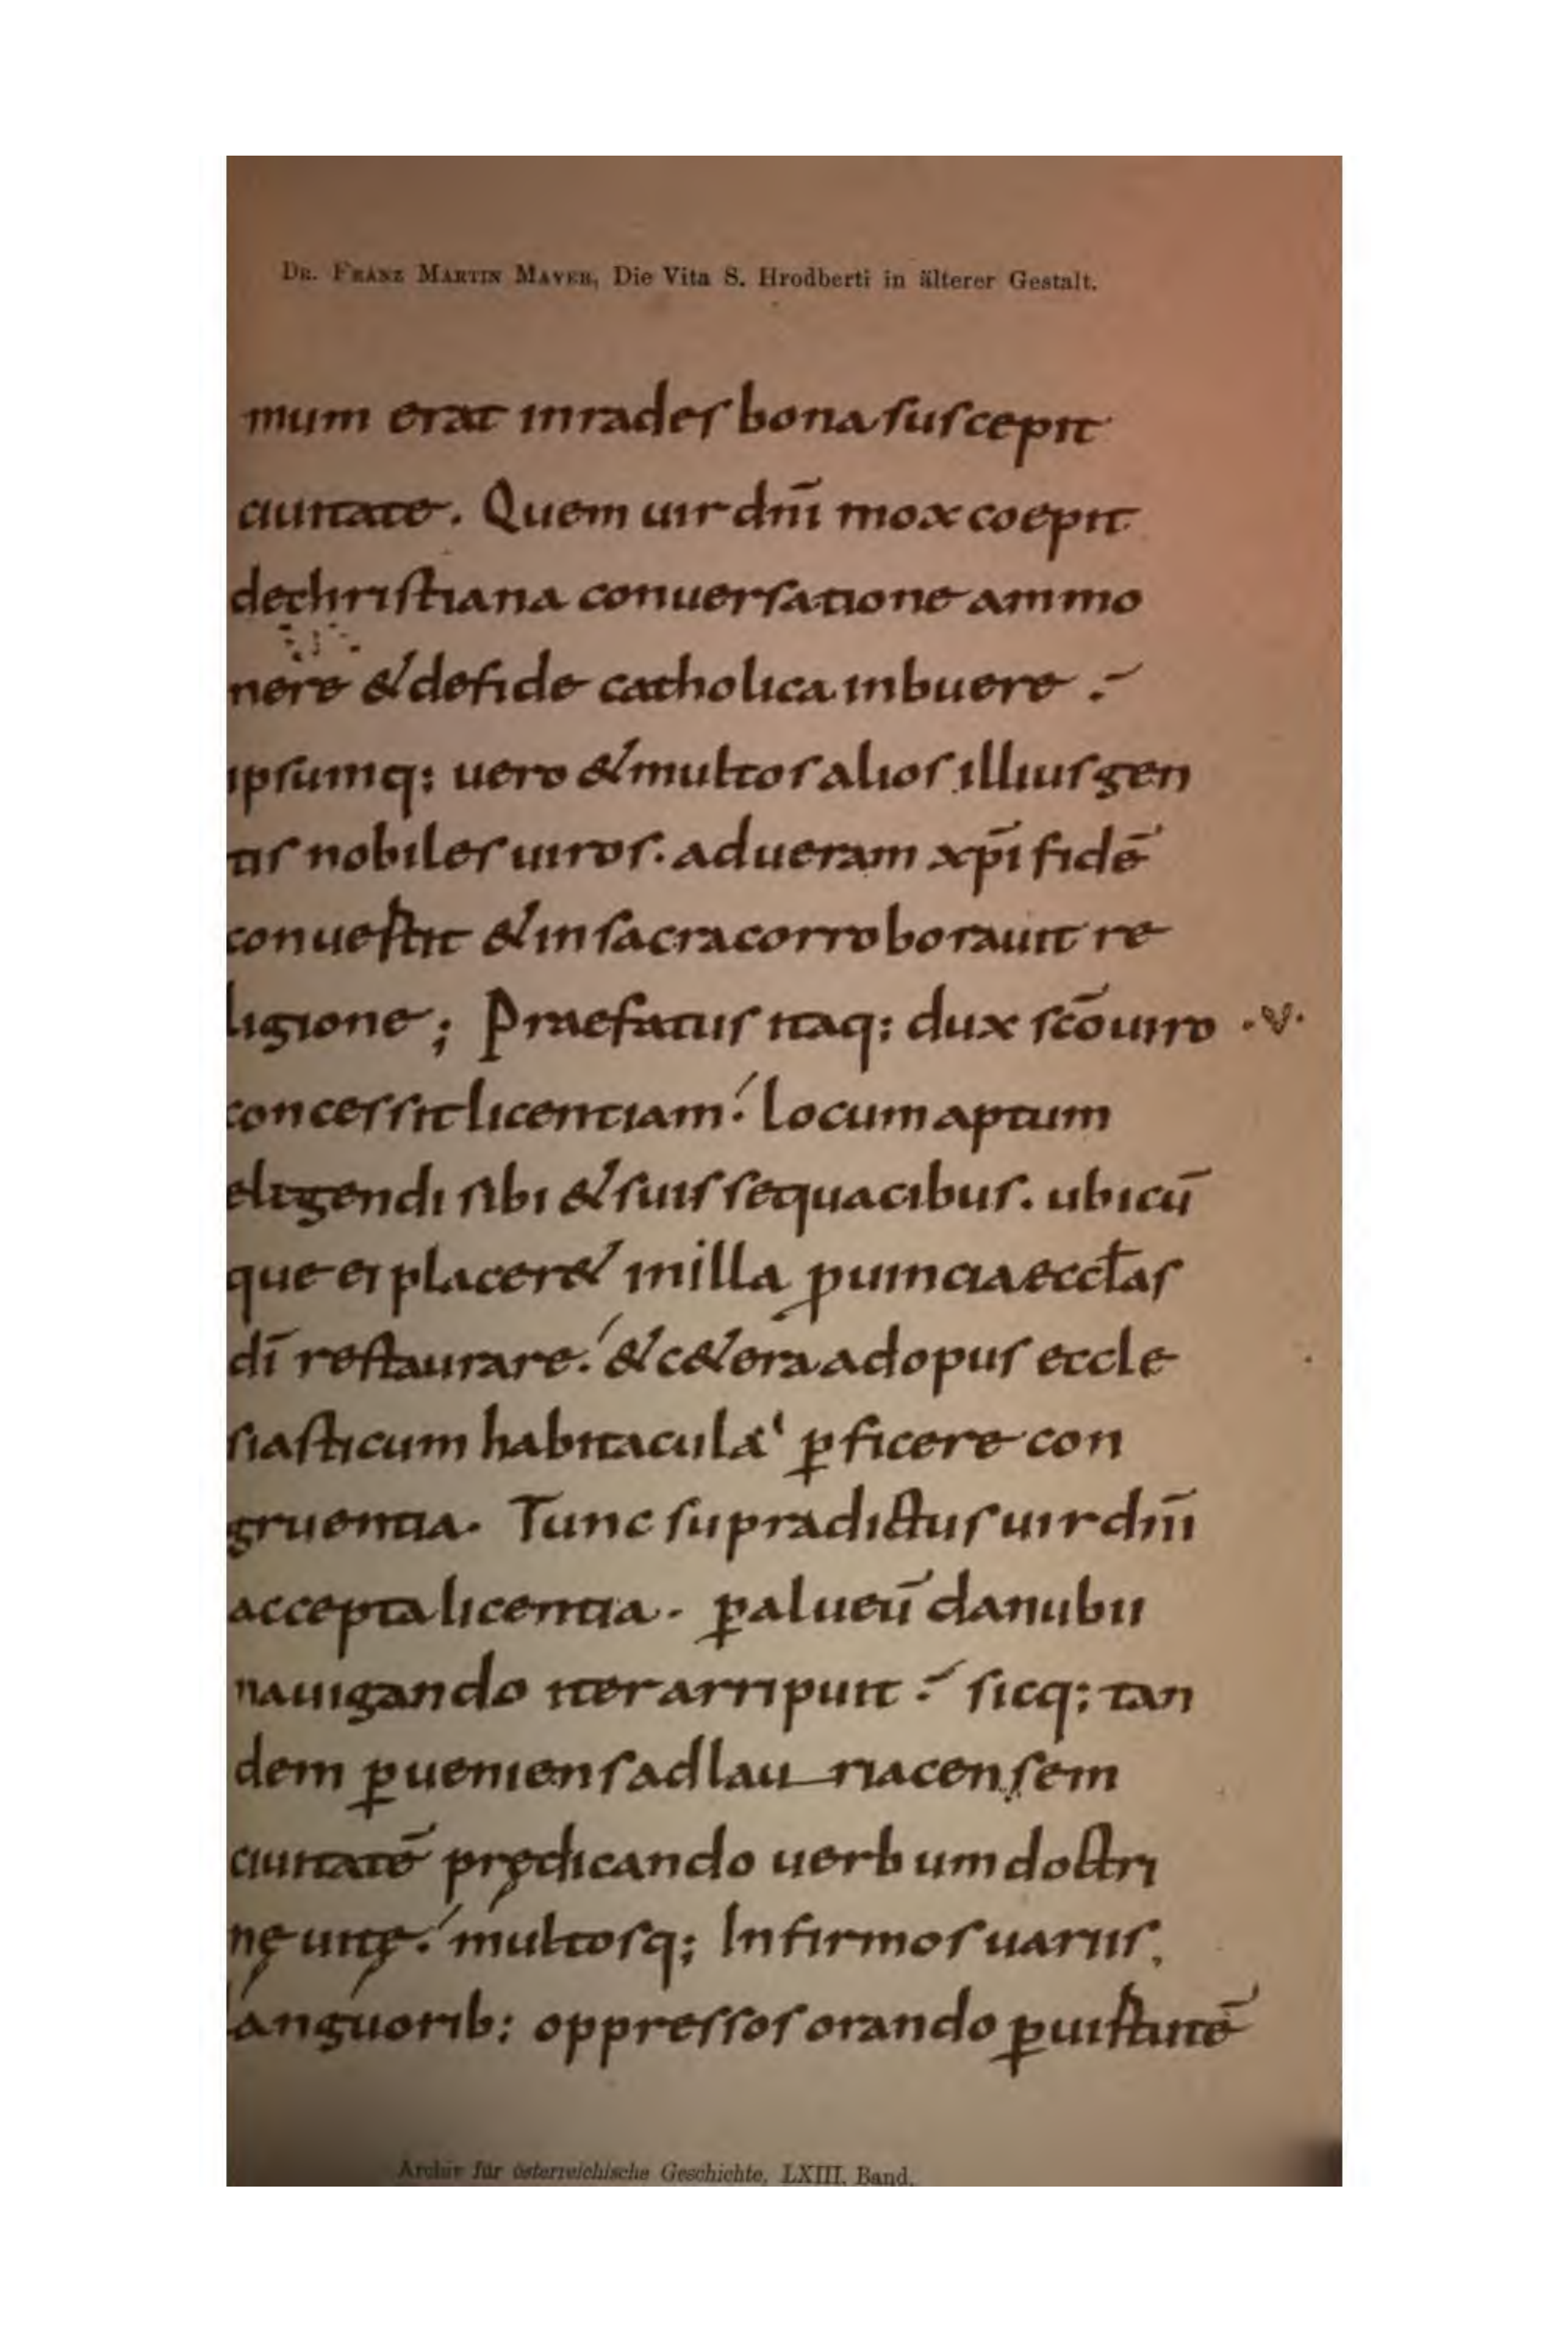 Dr. Franz Martin Mayer, Die Vita S. Hrodberti in älterer Gestalt.
mum erat inrades bona suscepit
ciuitate. Quem uir dn̄i mox coepit
dechristiana conuersatione ammo
nere & defide catholica inbuere .
ipsumq; uero & multos alios illius gen
tis nobiles uiros. adueram xp̄i fidē
conuestit & insacra corroborauit re
ligione; Praefatus itaq; dux sc̄o uiro .v.
concessit licentiam. locum aptum
eligendi sibi & suis sequacibus. ubicū
que ei placer& inilla ꝓuincia eccl̄as
dī restaurare. & c&era adopus eccle
siasticum habitacula ꝑficere con
gruentia. Tunc supradictus uir dn̄i
accepta licentia. ꝑalueū danubii
nauigando iter arripuit . sicq; tan
dem ꝑueniens adlau riacensem
ciuitatē pręsdicando uerbum doctri
nę uitę. multosq; Infirmos uariis.
languorib; oppressos orando ꝑ uirtutē
Archiv für österreichische Geschichte, LXIII. Band.